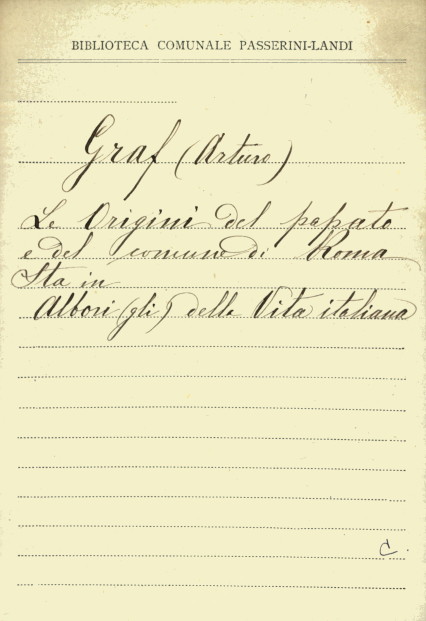 BIBLIOTECA COMUNALE PASSERINI-LANDI
Graf (Arturo)
Le Origini del papato
e del comune di Roma
Sta in
Albori (gli) della Vita italiana
C.